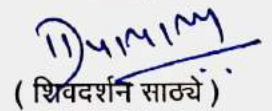 ( शिवदर्शन साठ्ये )